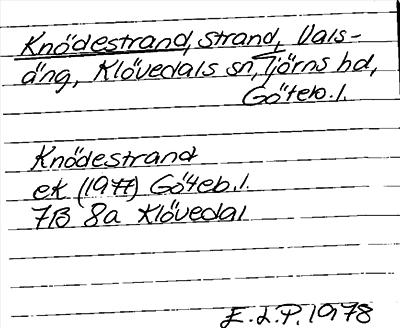 Knödestrand, strand, Vals-
äng, Klövedals sn, Tjörns hd,
Göteb. l.
Knödestrand
ek (1977) Göteb. l.
7B 8a Klövedal
E.L.P. 1978